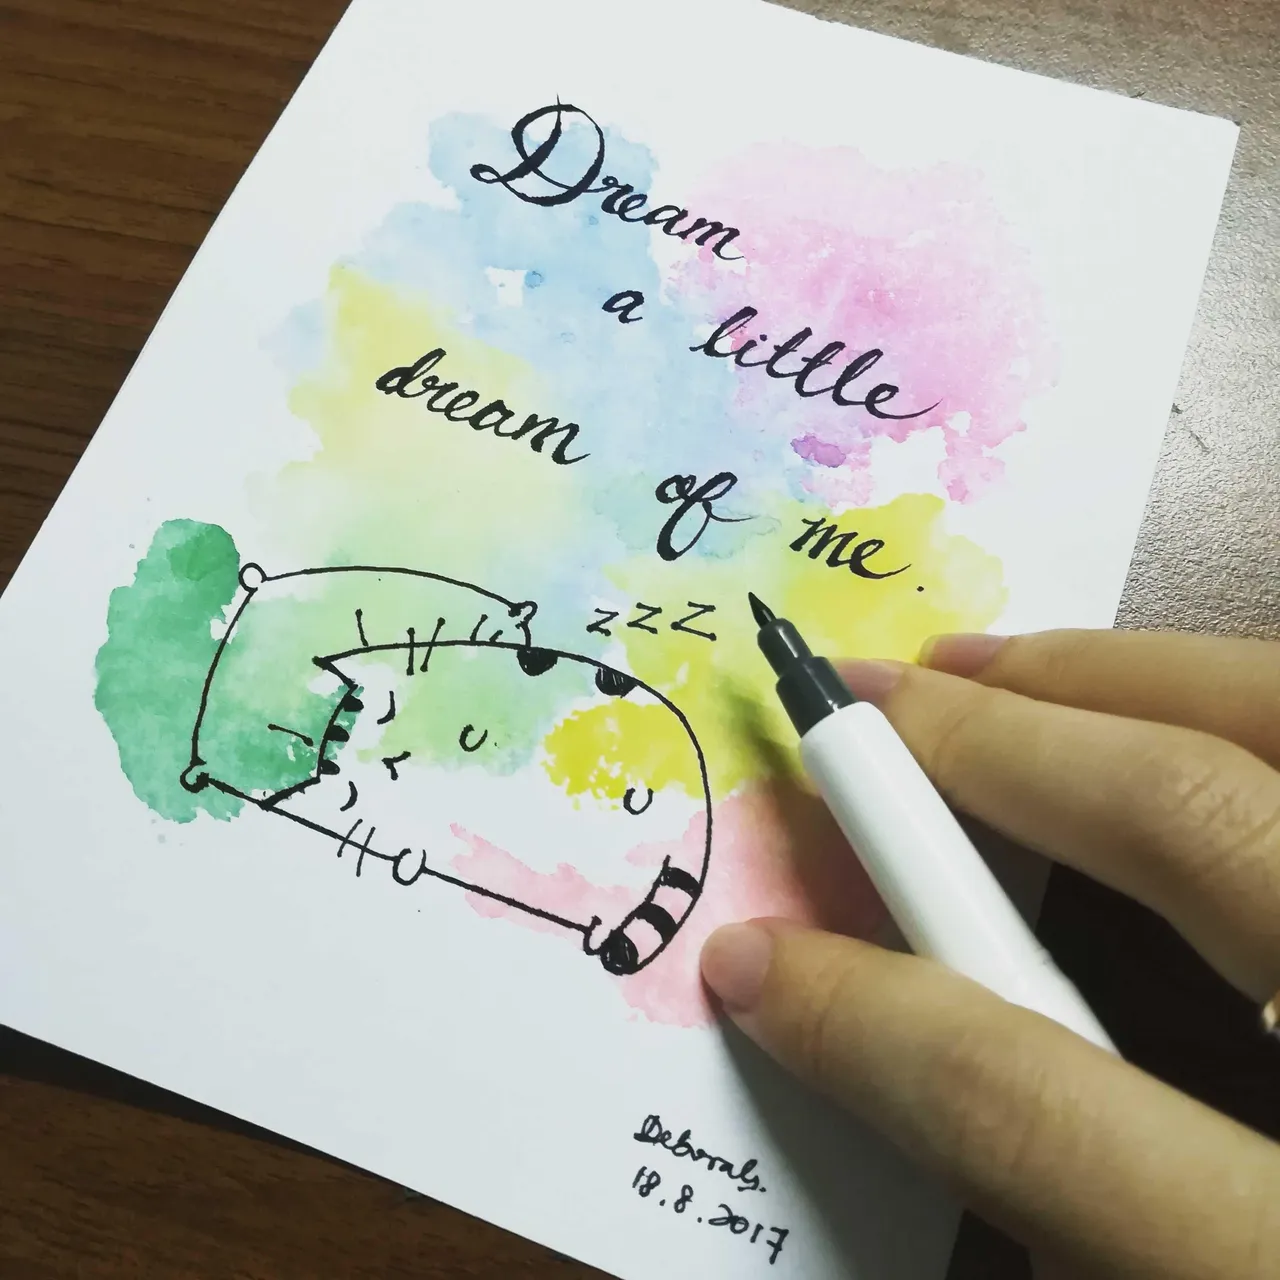 Dream
a little
dream
of me.
zzz
Deborah.
18.8.2017